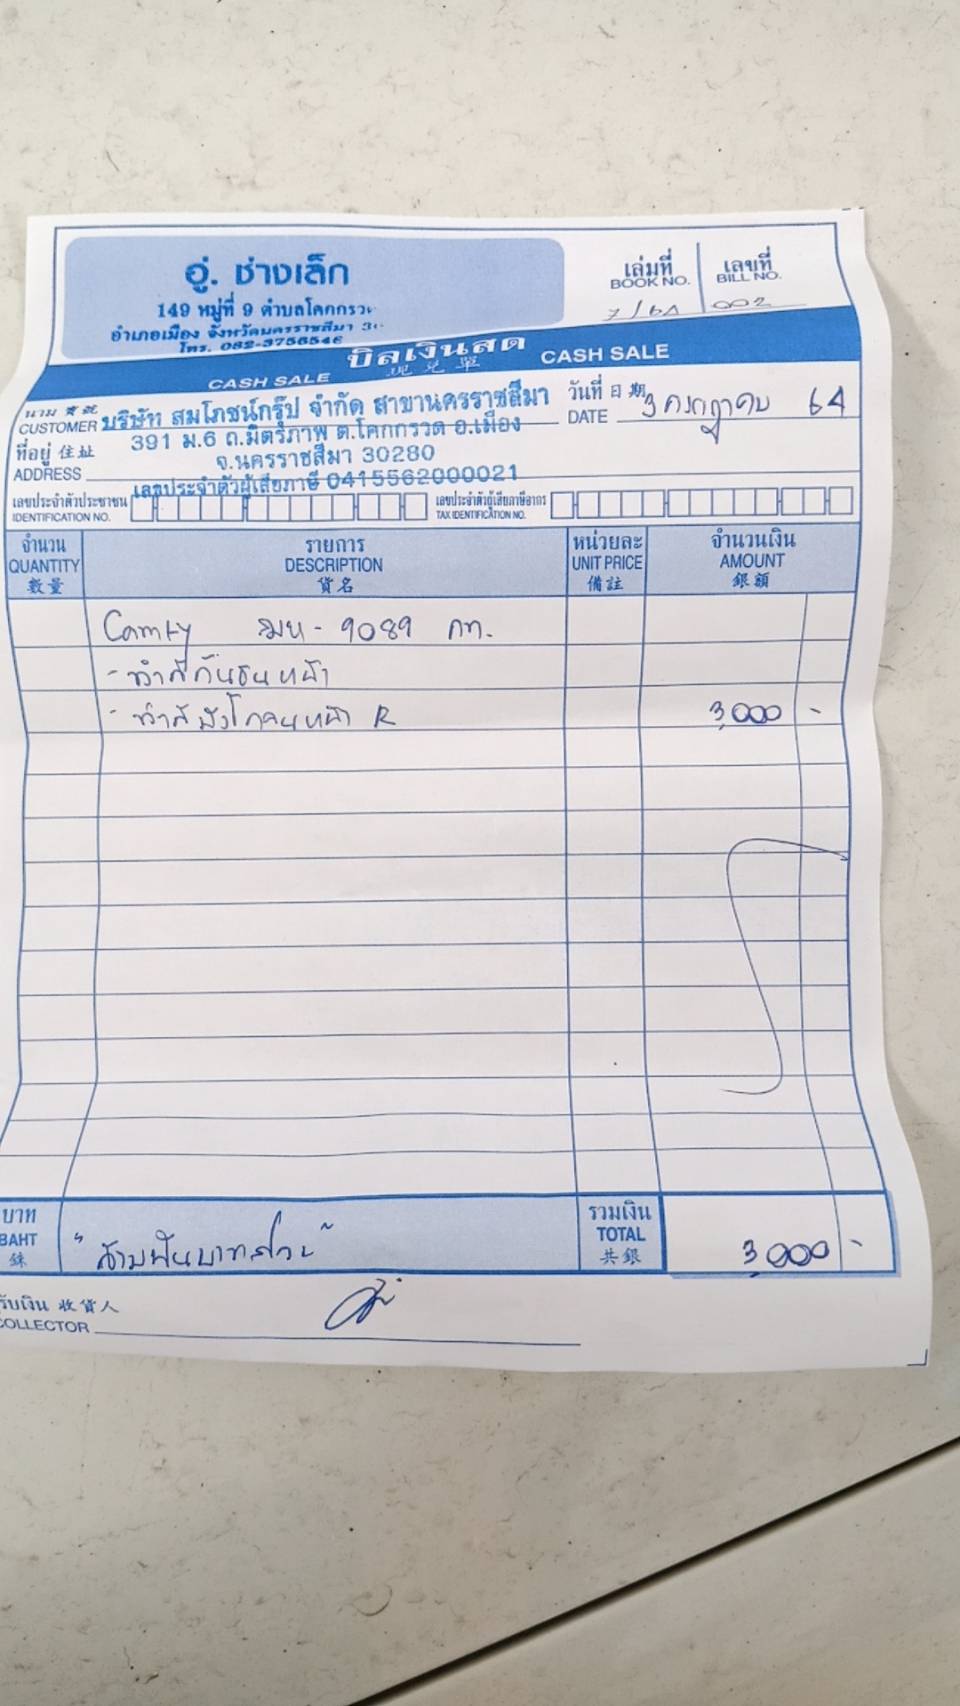 อู่. ช่างเล็ก
149 หมู่ที่ 9 ตำบลโคกกรวด
อำเภอเมือง จังหวัดนครราชสีมา
โทร. 082-3756546
เล่มที่ เลขที่
BOOK NO. BILL NO.
7/64 002
บิลเงินสด
CASH SALE 現兌單 CASH SALE
นาม 寶號
CUSTOMER บริษัท สมโภชน์กรุ๊ป จำกัด สาขานครราชสีมา
วันที่ 日期
DATE 3 กรกฎาคม 64
ที่อยู่ 住址 391 ม.6 ถ.มิตรภาพ ต.โคกกรวด อ.เมือง
จ.นครราชสีมา 30280
ADDRESS
เลขประจำตัวผู้เสียภาษี 0415562000021
เลขประจำตัวประชาชน เลขประจำตัวผู้เสียภาษีอากร
IDENTIFICATION NO. TAX IDENTIFICATION NO.
จำนวน รายการ หน่วยละ จำนวนเงิน
QUANTITY DESCRIPTION UNIT PRICE AMOUNT
數量 貨名 備註 銀額
Camry ฆห - 9089 กท.
- ทำสีกันชนหน้า
- ทำสีบังโคลนหน้า R 3,000 -
บาท รวมเงิน
BAHT "สามพันบาทถ้วน" TOTAL 3,000 -
銖 共銀
รับเงิน 收貨人
COLLECTOR